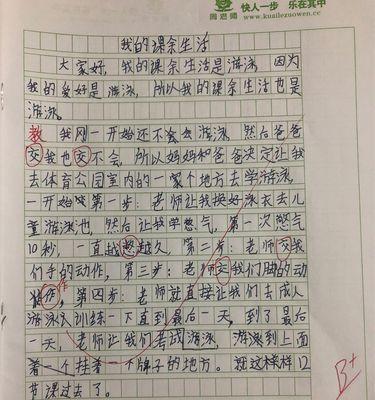 快人一步 乐在其中
www.kuailezuowen.cc
我的课余生活
大家好，我的课余生活是游泳，因为
我的爱好是游泳，所以我的课余生活也是
游泳。
教 我刚一开始还不会游泳，然后爸爸
交我也交不会，所以妈妈和爸爸决定让我
去体育公园室内的一家个地方去学游泳，
一开始味第一步：老师让我换好泳衣去儿
童游泳池，然后让我学憋气，第一次憋气
10秒，一直越憋越久，第二步：老师交我
们手的动作，第三步：老师交我们脚的动
作作，第四步：老师就直接让我们去成人
游泳区训练一下直到最后一天，到了最后
一天，老师让我们考试游泳，游泳到上面
着一个挂着一个牌子的地方。就这样样12
节课过去了。
B+